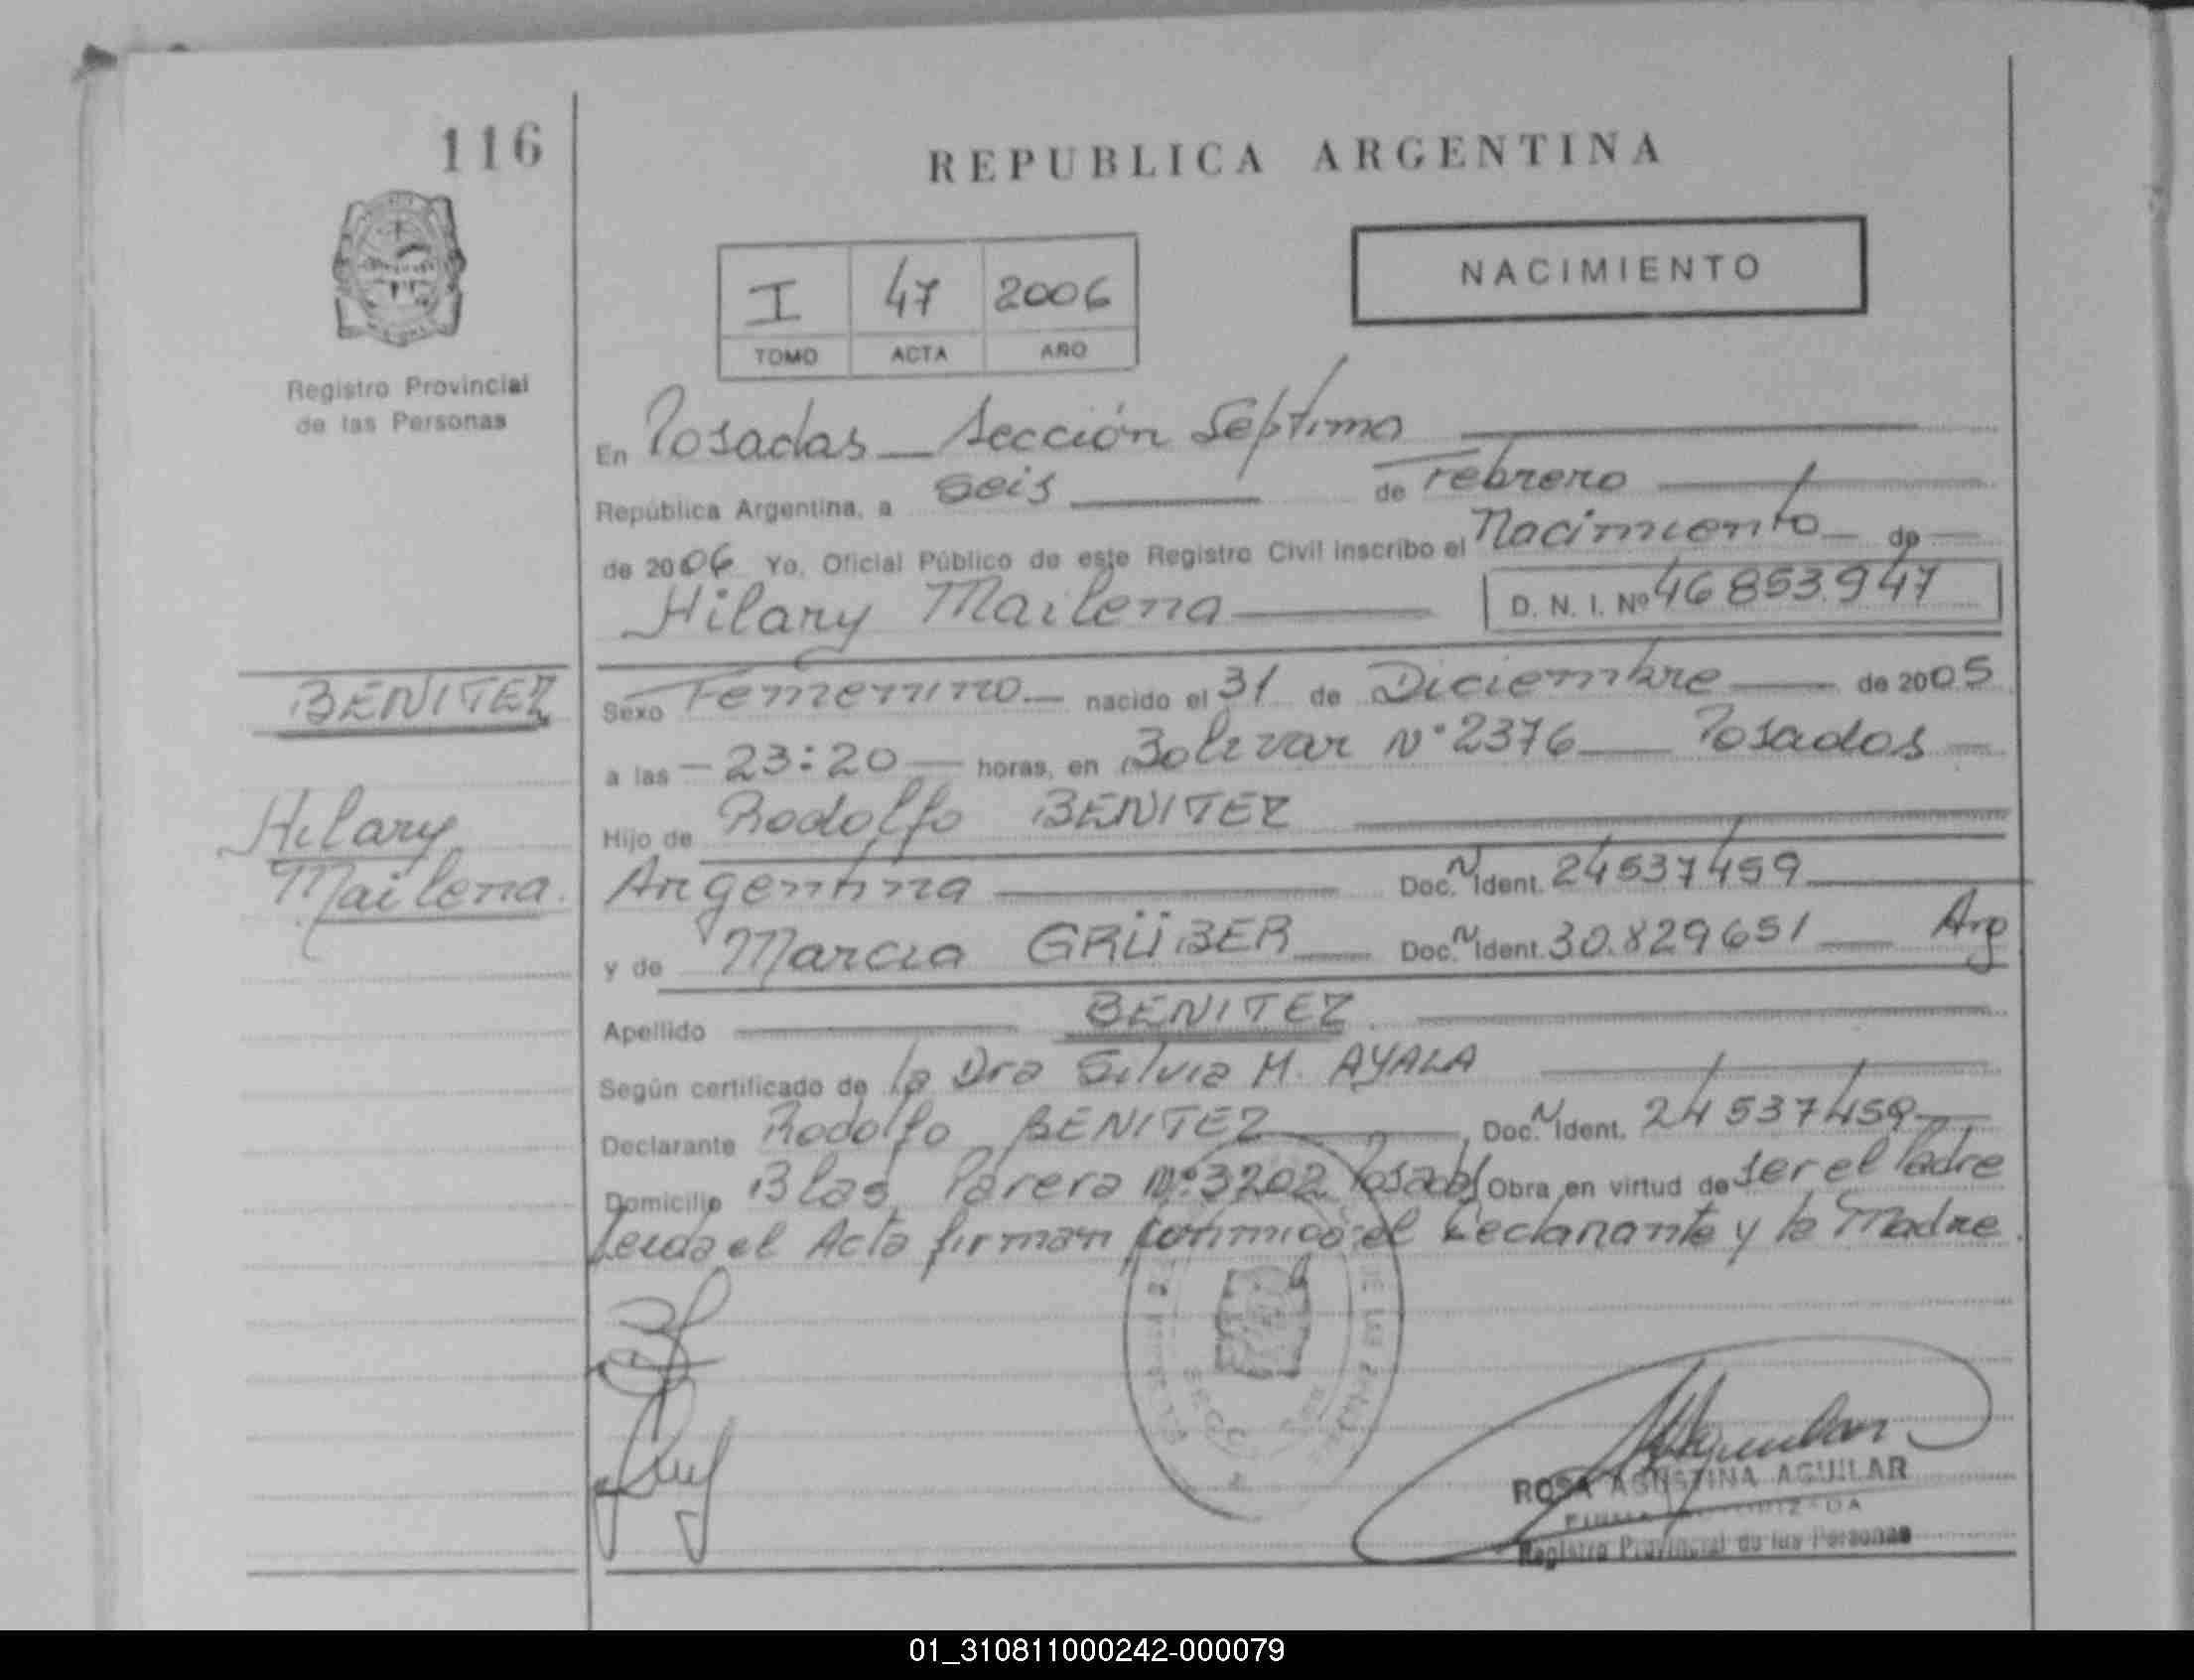 116
REPUBLICA ARGENTINA
NACIMIENTO
I 47 2006
TOMO ACTA AÑO
Registro Provincial
de las Personas
En Posadas Sección Séptima
República Argentina, a seis de Febrero
de 2006 Yo, Oficial Público de este Registro Civil inscribo el Nacimiento de
Hilary Mailena D. N. I. Nº 46 853.947
BENITEZ
Hilary
Mailena.
Sexo Femenino nacido el 31 de Diciembre de 2005
a las - 23:20 - horas, en Bolivar Nº 2376 Posadas
Hijo de Rodolfo BENITEZ
Argentina Doc. N Ident. 24537459
y de Marcia GRÜBER Doc. N Ident. 30.829651 Arg
Apellido BENITEZ
Según certificado de la Dra Silvia M. AYALA
Declarante Rodolfo BENITEZ, Doc. N Ident. 24537459
Domicilio Blas Parera Nº 3202 Posadas Obra en virtud de ser el Padre
Leida el Acta firman conmigo el Declarante y la Madre.
DE LAS
ROSA AGUSTINA AGUILAR
Registro Provincial de las Personas
01_310811000242-000079